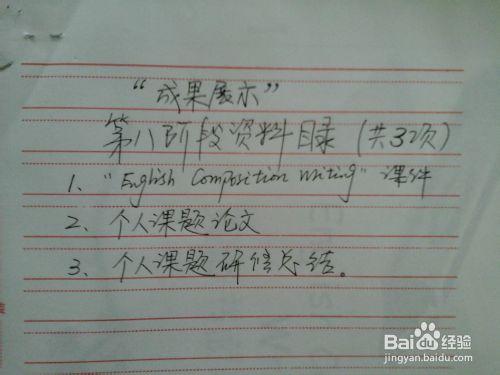 “成果展示”
第八阶段资料目录（共3项）
1、“English Composition Writing”课件
2、个人课题论文
3、个人课题研修总结。
Baidu 经验
jingyan.baidu.com